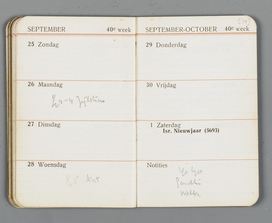 SEPTEMBER 40e week
25 Zondag
26 Maandag
27 Dinsdag
28 Woensdag
SEPTEMBER-OCTOBER 40e week
29 Donderdag
30 Vrijdag
1 Zaterdag
Isr. Nieuwjaar (5693)
Notities